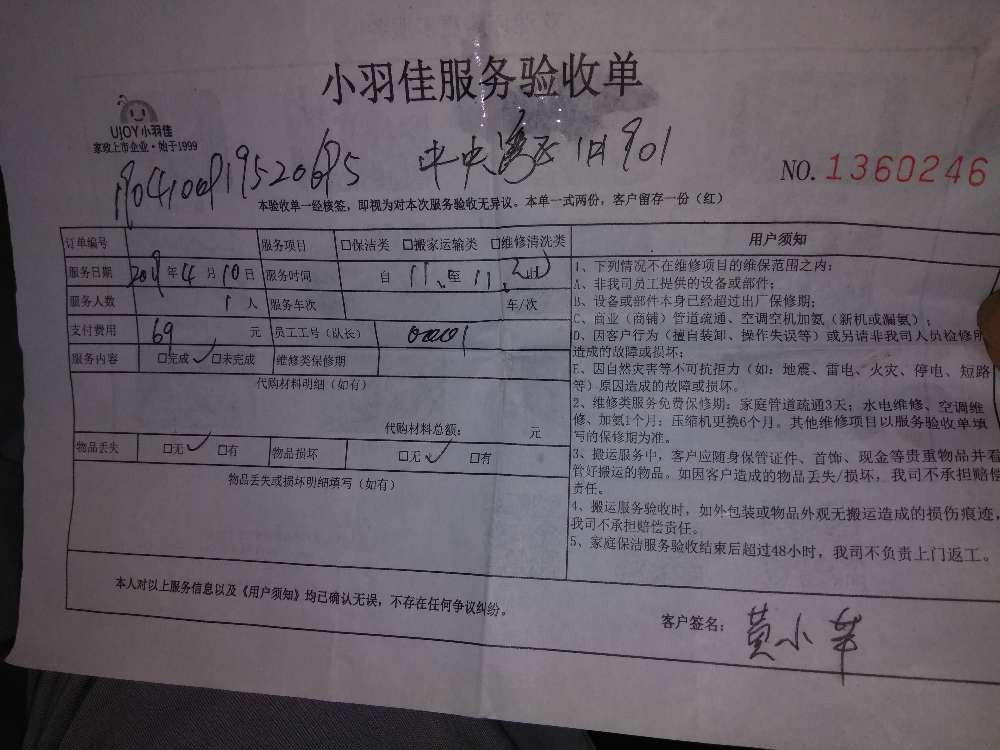 小羽佳服务验收单
UJOY小羽佳
家政上市企业·始于1999
中央湾区 901
NO. 1360246
本验收单一经核签，即视为对本次服务验收无异议。本单一式两份，客户留存一份（红）
订单编号 服务项目 □保洁类 □搬家运输类 □维修清洗类
服务日期 2019年4月10日 服务时间 自 11 至 11
服务人数 1 人 服务车次 车/次
支付费用 69 元 员工工号（队长）
服务内容 □完成 ✓ □未完成 维修类保修期
代购材料明细（如有）
代购材料总额： 元
物品丢失 □无 ✓ □有 物品损坏 □无 ✓ □有
物品丢失或损坏明细填写（如有）
用户须知
1、下列情况不在维修项目的维保范围之内：
A、非我司员工提供的设备或部件；
B、设备或部件本身已经超过出厂保修期；
C、商业（商铺）管道疏通、空调空机加氨（新机或漏氨）；
D、因客户行为（擅自装卸、操作失误等）或另请非我司人员检修所
造成的故障或损坏；
E、因自然灾害等不可抗拒力（如：地震、雷电、火灾、停电、短路
等）原因造成的故障或损坏。
2、维修类服务免费保修期：家庭管道疏通3天；水电维修、空调维
修、加氨1个月；压缩机更换6个月。其他维修项目以服务验收单填
写的保修期为准。
3、搬运服务中，客户应随身保管证件、首饰、现金等贵重物品并看
管好搬运的物品。如因客户造成的物品丢失/损坏，我司不承担赔偿
责任。
4、搬运服务验收时，如外包装或物品外观无搬运造成的损伤痕迹，
我司不承担赔偿责任。
5、家庭保洁服务验收结束后超过48小时，我司不负责上门返工。
本人对以上服务信息以及《用户须知》均已确认无误，不存在任何争议纠纷。
客户签名： 黄小